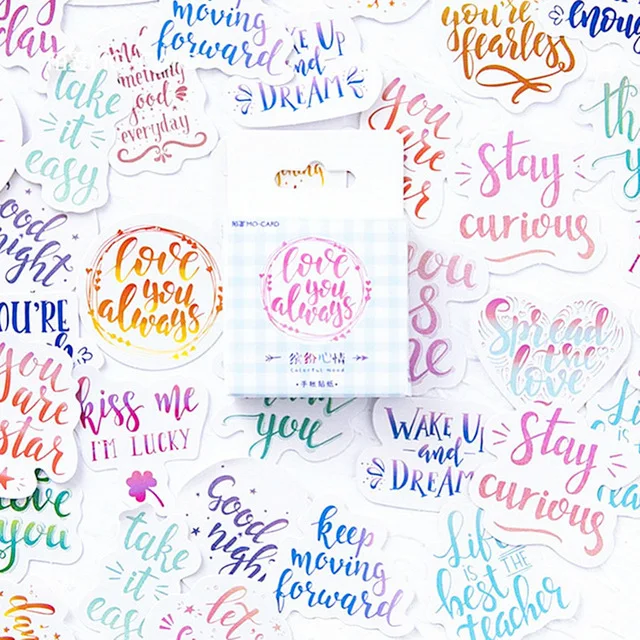 day
moving
forward
WAKE UP
and
DREAM
you're
fearless
enough
take
it
easy
something
good
everyday
you
are
star
stay
curious
good
night
love
you
always
陌墨 MO·CARD
love
you
always
缤纷心情
Colorful Mood
·手帐贴纸·
you
is
me
Spread
the
love
YOU'RE
you
are
star
kiss me
I'M LUCKY
you
WAKE UP
and
DREAM
Stay
curious
love
you
take
it
easy
Good
night
keep
moving
forward
Life
IS THE
best
teacher
let